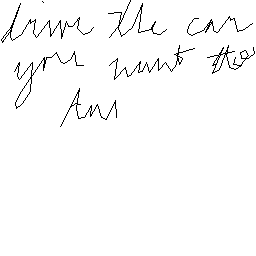 drive the car
you want the
Ann